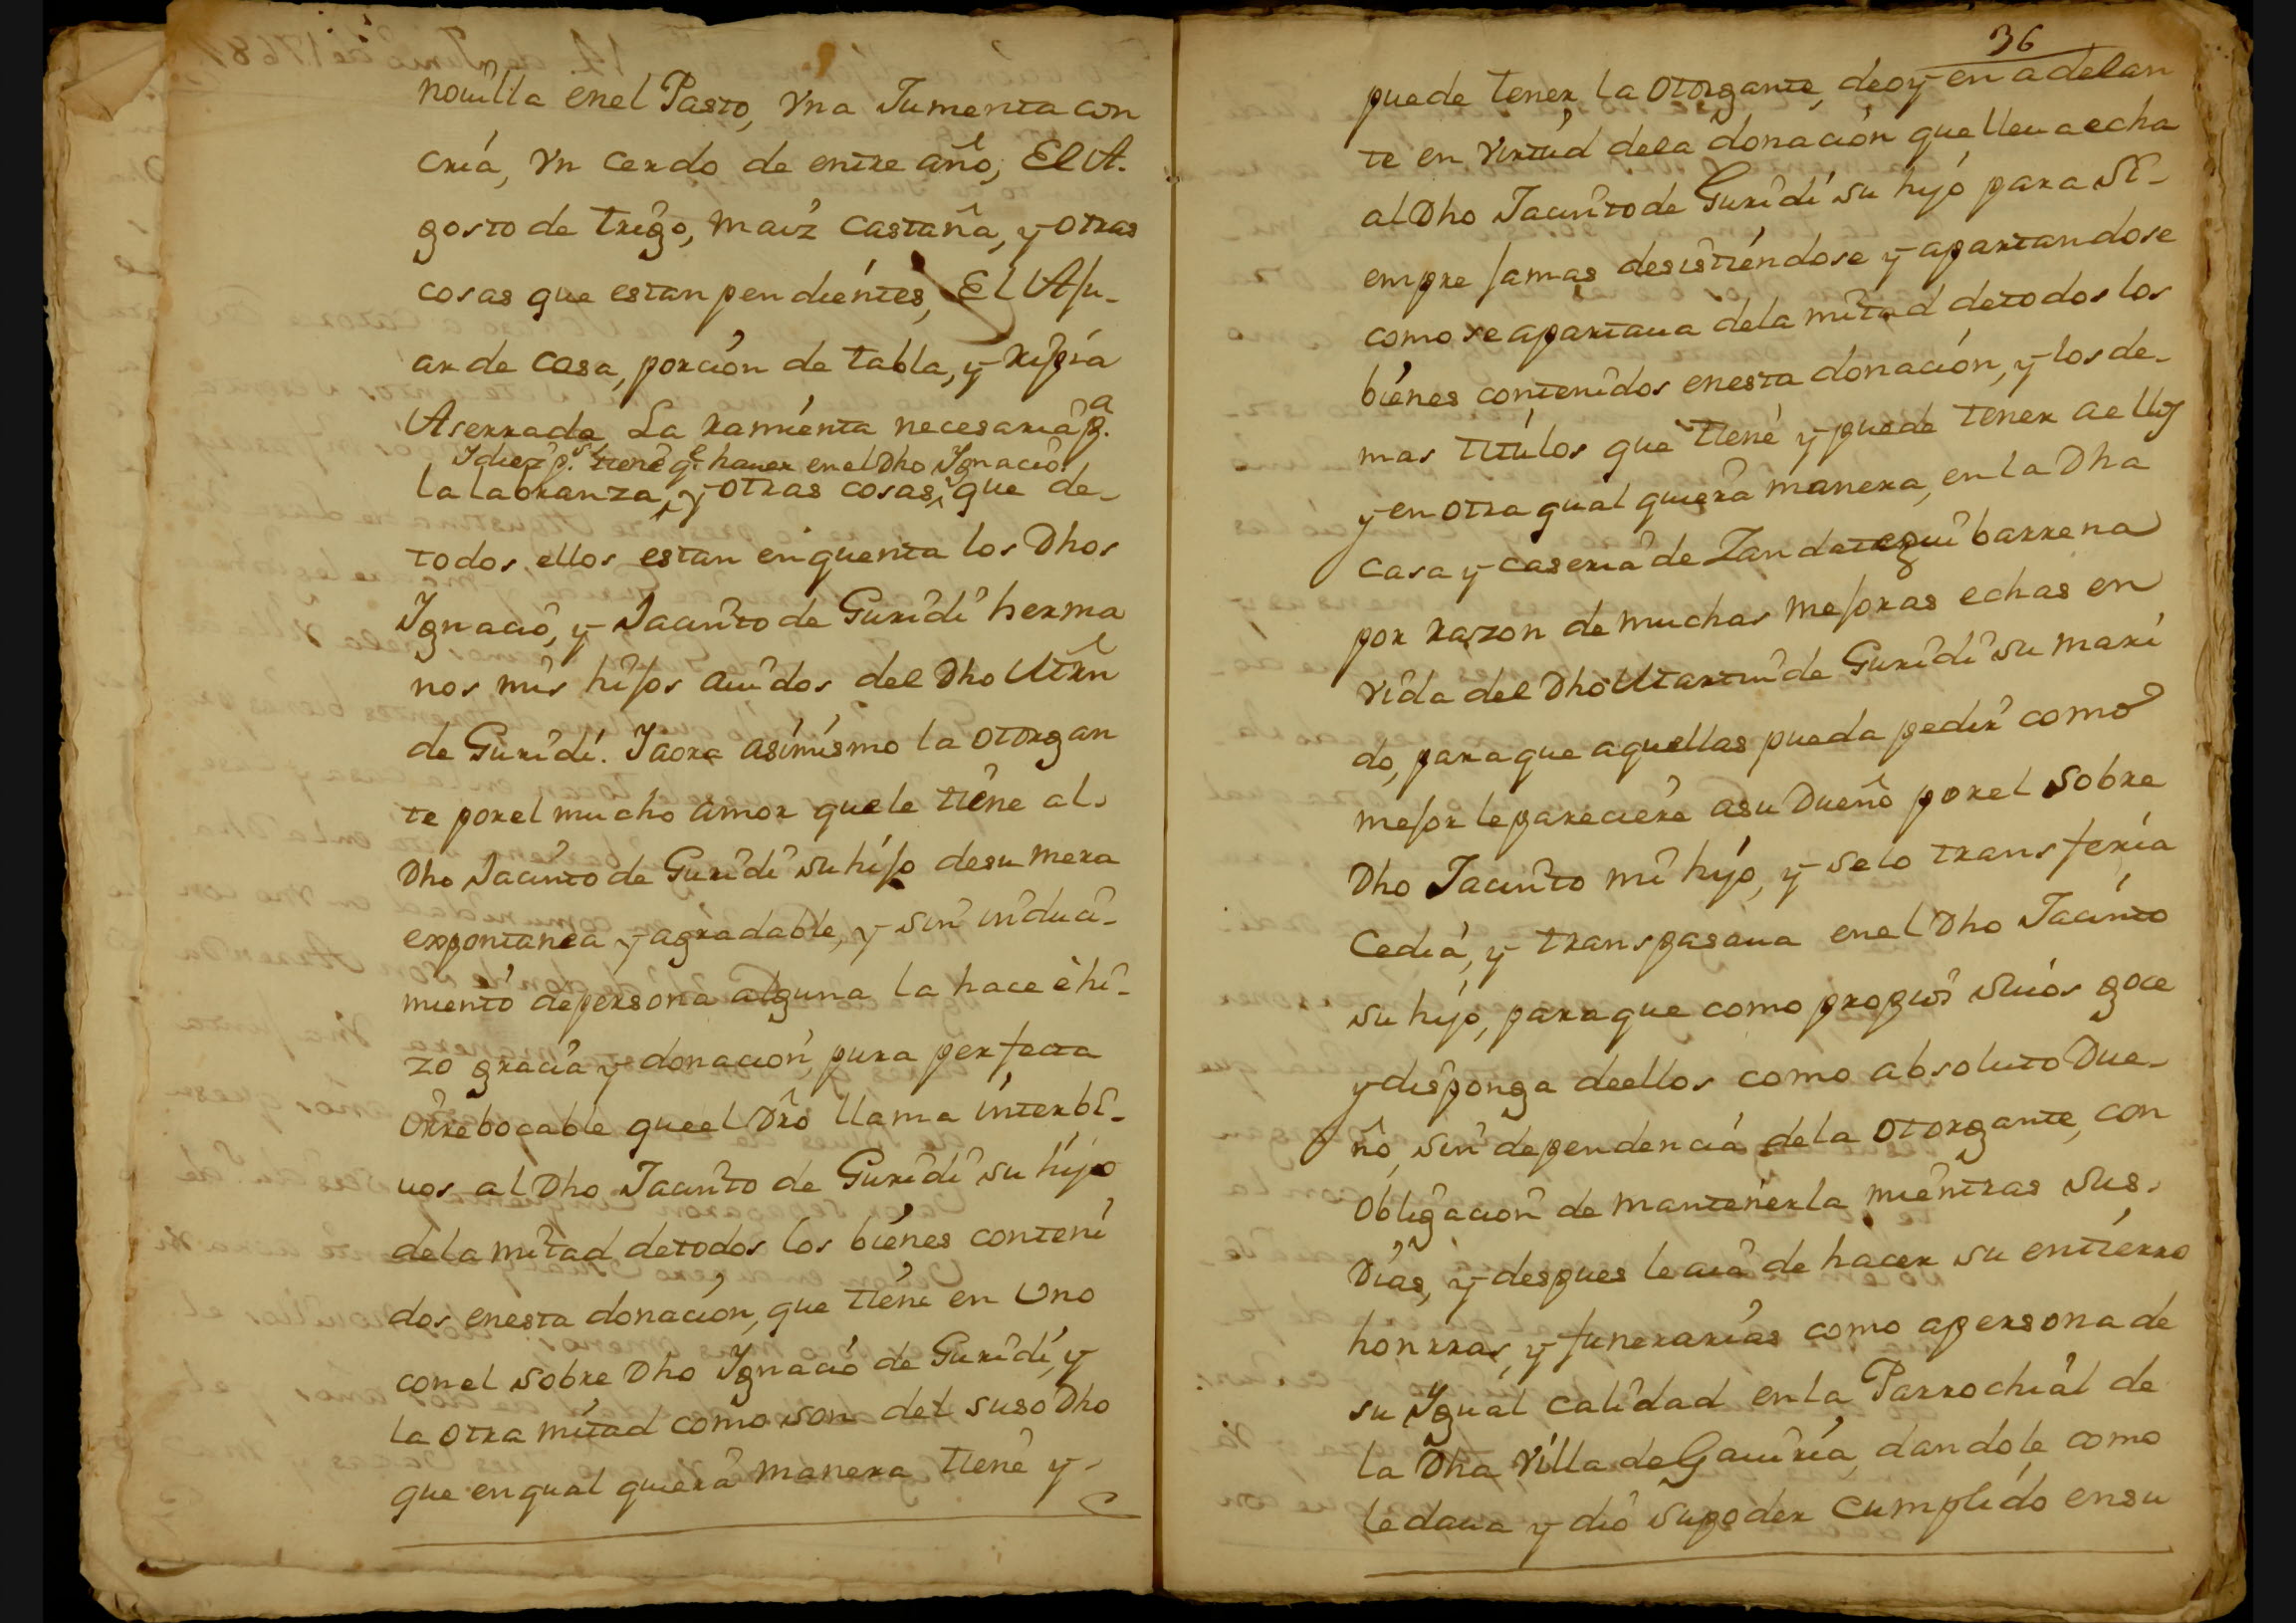 nouilla enel Pasto, Vna Jumenta con
cria, Vn cerdo de entre año, El A-
gosto de trigo, maiz castaña, y otras
cosas que estan pendientes, El Aju-
ar de casa, porcion de tabla, y ripia
Aserrada, La ramienta necesaria pa.
Idiez ps. tiene qe. hauer enel Dho Ignacio
la labranza, y otras cosas, que de-
todos ellos estan enquenta los Dhos
Ignacio, y Jacinto de Guridi herma
nos mis hijos auidos del Dho Mrñ
de Guridi. Iaora asimismo la otorgan
te porel mucho amor quele tiene al-
Dho Jacinto de Guridi su hijo desu mera
expontanea y agradable, y sin induci-
miento depersona alguna la hace è hi-
zo gracia y donacion, pura perfecta
irrebocable queel Dro llama interbi-
uos al Dho Jacinto de Guridi su hijo
dela mitad detodos los bienes conteni
dos enesta donacion, que tiene en Uno
conel sobre Dho Ignacio de Guridi, y
la otra mitad como son del suso Dho
que enqual quiera manera tiene y-
36
puede tener, la otorgante, deoy en adelan
te en virtud dela donacion que lleua echa
al Dho Jacinto de Guridi su hijo para Si-
empre jamas desistiendose y apartandose
como se apartaua dela mitad detodos los
bienes contenidos enesta donacion, y los de-
mas titulos que tiene y puede tener aellos
y en otra qual quiera manera, en la Dha
casa y caseria de Zandategui barrena
por razon de muchas mejoras echas en
vida del Dho Martin de Guridi su mari
do, para que aquellas pueda pedir como
mejor lepareciere asu Dueño porel sobre
Dho Jacinto mi hijo, y selo transferia
Cedia, y transpasaua enel Dho Jacinto
su hijo, paraque como propios suios goce
y disponga deellos como absoluto Due-
ño, sin dependencia dela otorgante, con
obligacion de mantenerla mientras sus-
Dias, y despues le aia de hacer su entierro
honrras, y funerarias como apersona de
su Igual calidad enla Parrochial de
la Dha Villa de Gauiria, dandole como
ledaua y dio supoder cumplido ensu